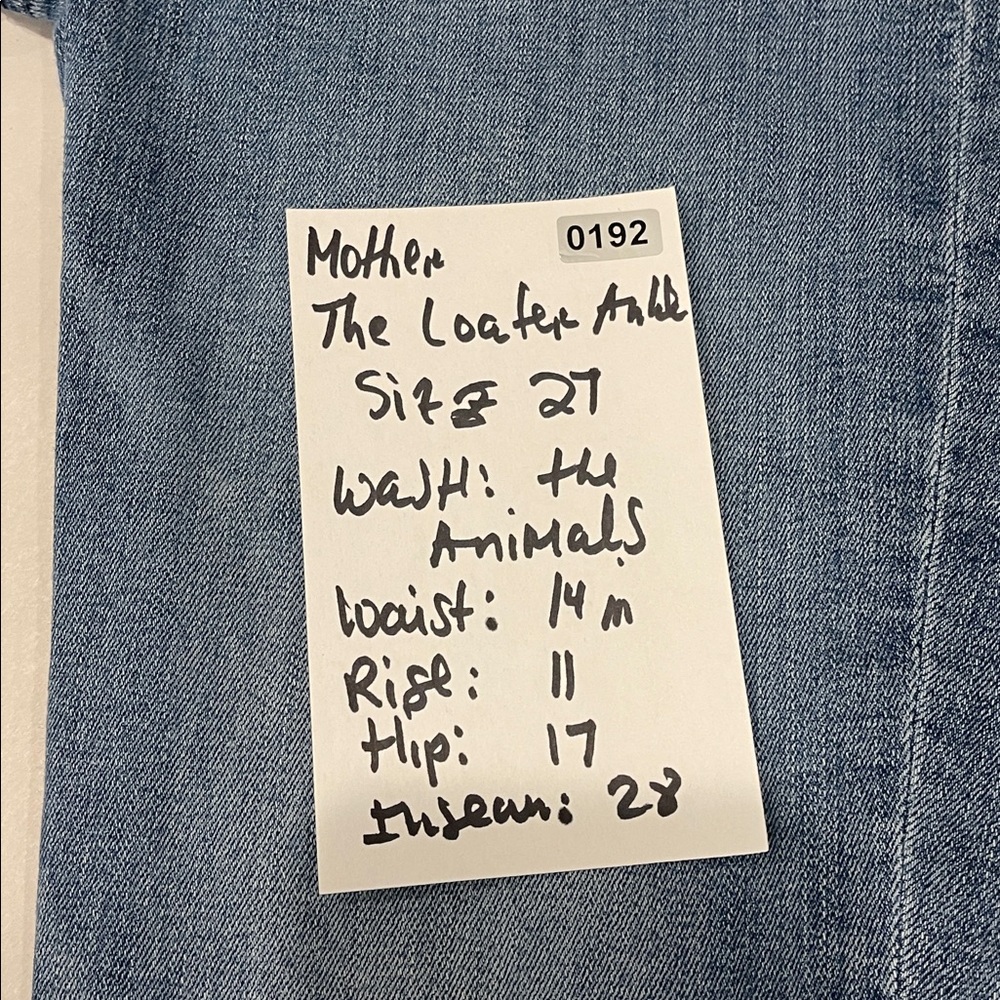 0192
Mother
The Loafer Ankle
Size 27
Wash: the
Animals
Waist: 14 in
Rise: 11
Hip: 17
Inseam: 28